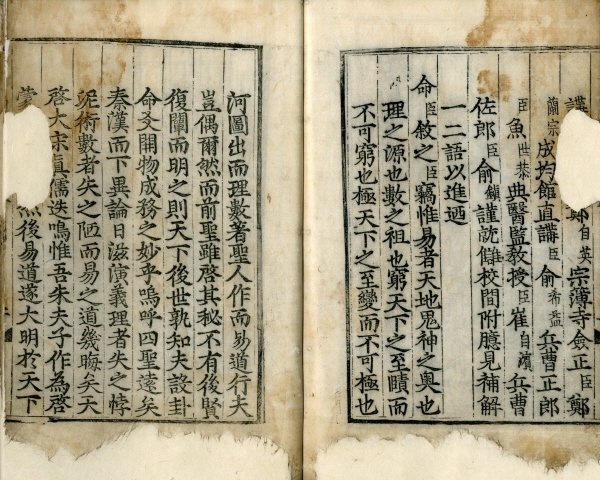 鄭自英宗簿寺僉正臣鄭
蘭宗成均館直講臣兪希益兵曹正郎
臣魚世恭典醫監敎授臣崔自濱兵曹
佐郎臣兪鎭謹就讎校間附臆見補解
一二語以進廼
命臣敍之臣竊惟易者天地鬼神之奧也
理之源也數之祖也窮天下之至賾而
不可窮也極天下之至變而不可極也
河圖出而理數著聖人作而易道行夫
豈偶爾然而前聖雖啓其秘不有後賢
復闡而明之則天下後世孰知夫設卦
命爻開物成務之妙乎嗚呼四聖遠矣
秦漢而下異論日滋演義理者失之悖
泥術數者失之陋而易之道幾晦矣天
啓大宋眞儒迭鳴惟吾朱夫子作爲啓
蒙 然後易道遂大明於天下